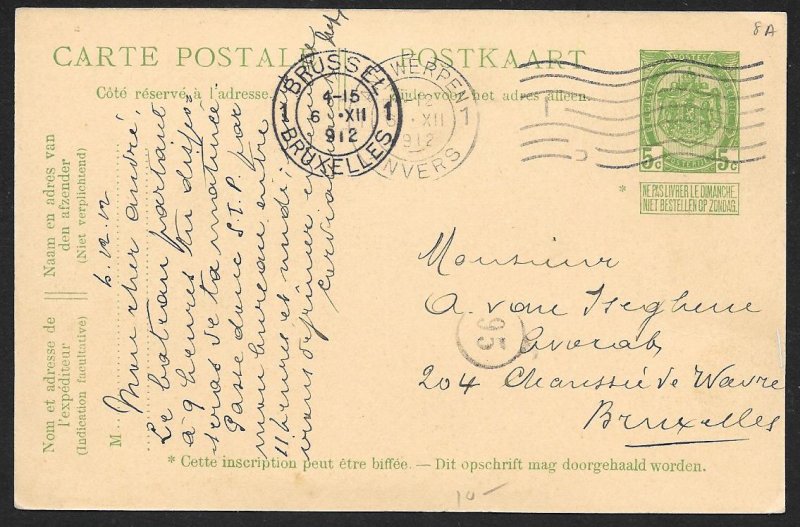 8A
CARTE POSTALE
POSTKAART
Côté réservé à l'adresse.
Zijde voor het adres alleen.
BRUSSEL
4-15
6 XII
1912
BRUXELLES
1 1
WERPEN
XII
1912
NVERS
1
POSTES
5c 5c
NE PAS LIVRER LE DIMANCHE.
NIET BESTELLEN OP ZONDAG.
*
Naam en adres van
den afzender
(Niet verplichtend)
Nom et adresse de
l'expéditeur
(Indication facultative)
M
6.12.12
Mon cher André,
Le bateau partant
à 9 heures tu dispo-
seras de ta matinée.
Passe donc S.T.P. par
mon bureau entre
11 heures et midi;
nous
Monsieur
A. van Iseghem
Avocat
204 Chaussée de Wavre
Bruxelles
95
* Cette inscription peut être biffée. — Dit opschrift mag doorgehaald worden.
10-